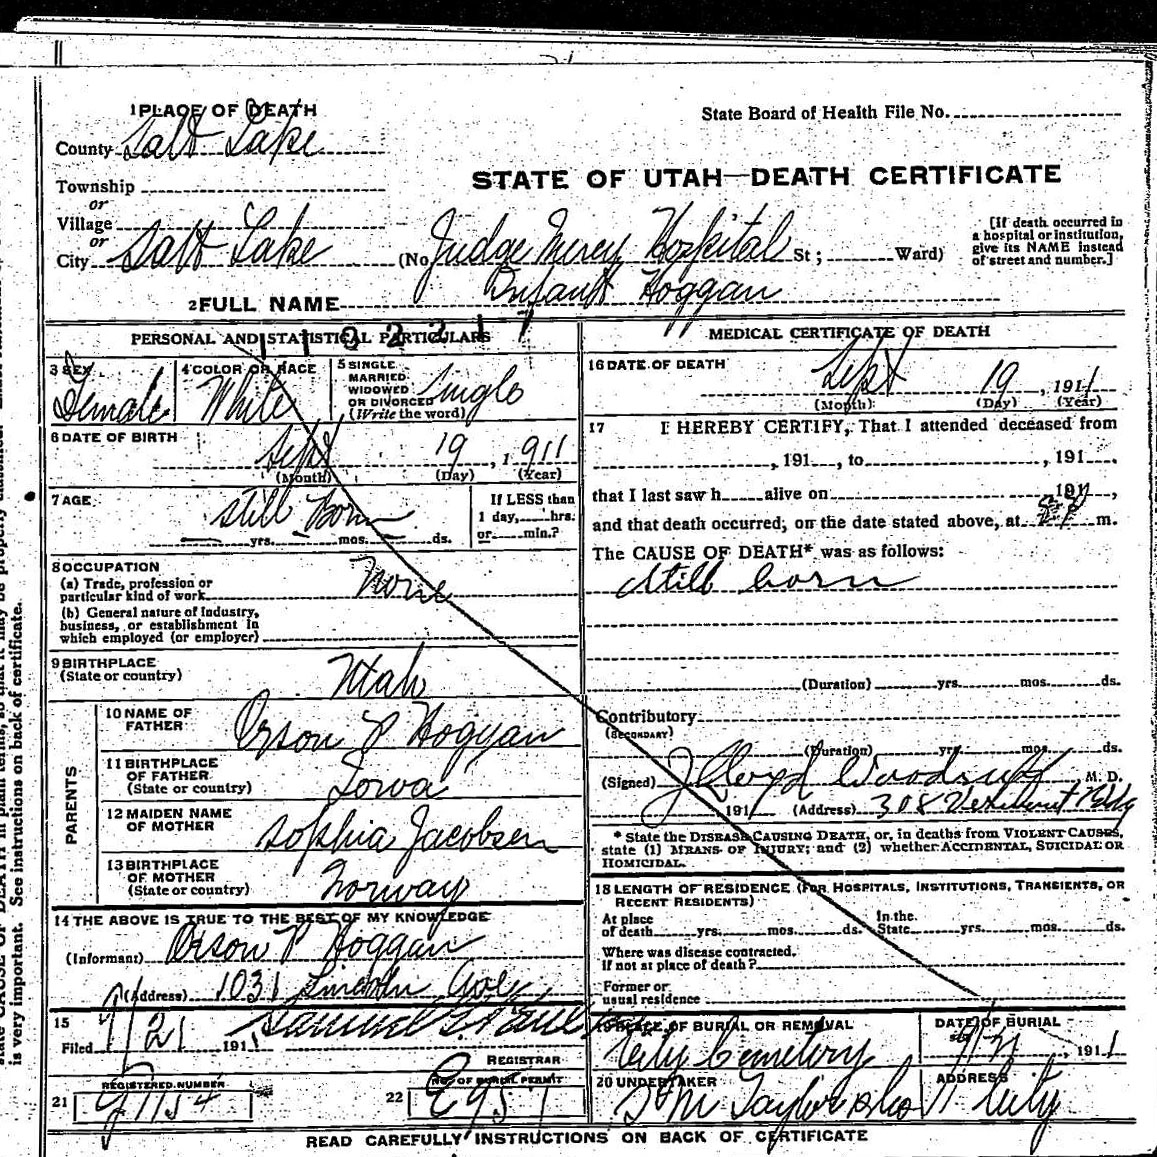 1 PLACE OF DEATH
State Board of Health File No.
County Salt Lake
STATE OF UTAH—DEATH CERTIFICATE
Township
or
Village
or
City Salt Lake (No. Judge Mercy Hospital St; Ward)
[If death occurred in
a hospital or institution,
give its NAME instead
of street and number.]
2 FULL NAME Infant Hoggan
PERSONAL AND STATISTICAL PARTICULARS
3 SEX Female
4 COLOR OR RACE White
5 SINGLE
MARRIED
WIDOWED
OR DIVORCED
(Write the word) Single
6 DATE OF BIRTH
Sept 19, 1911
(Month) (Day) (Year)
7 AGE
Still Born
yrs. mos. ds.
If LESS than
1 day, hrs.
or min.?
8 OCCUPATION
(a) Trade, profession or
particular kind of work None
(b) General nature of Industry,
business, or establishment in
which employed (or employer)
9 BIRTHPLACE
(State or country) Utah
PARENTS
10 NAME OF
FATHER Orson P Hoggan
11 BIRTHPLACE
OF FATHER
(State or country) Iowa
12 MAIDEN NAME
OF MOTHER Sophia Jacobsen
13 BIRTHPLACE
OF MOTHER
(State or country) Norway
14 THE ABOVE IS TRUE TO THE BEST OF MY KNOWLEDGE
(Informant) Orson P Hoggan
(Address) 1031 Lincoln Ave
15
Filed 9/21 1911 Samuel G. Paul
REGISTRAR
REGISTERED NUMBER
21
NO. OF BURIAL PERMIT
22 E957
MEDICAL CERTIFICATE OF DEATH
16 DATE OF DEATH
Sept 19, 1911
(Month) (Day) (Year)
17 I HEREBY CERTIFY, That I attended deceased from
, 191 , to , 191 ,
that I last saw h alive on 191 ,
and that death occurred, on the date stated above, at m.
The CAUSE OF DEATH* was as follows:
Still born
(Duration) yrs. mos. ds.
Contributory
(SECONDARY)
(Duration) yrs. mos. ds.
(Signed) J Lloyd Woodruff, M. D.
191 (Address) 308 Vermont Bldg
* State the DISEASE CAUSING DEATH, or, in deaths from VIOLENT CAUSES,
state (1) MEANS OF INJURY; and (2) whether ACCIDENTAL, SUICIDAL OR
HOMICIDAL.
18 LENGTH OF RESIDENCE (FOR HOSPITALS, INSTITUTIONS, TRANSIENTS, OR
RECENT RESIDENTS)
At place
of death yrs. mos. ds.
In the
State yrs. mos. ds.
Where was disease contracted,
if not at place of death?
Former or
usual residence
19 PLACE OF BURIAL OR REMOVAL
City Cemetery
DATE OF BURIAL
9/21, 1911
20 UNDERTAKER
S. M. Taylor & Co
ADDRESS
City
READ CAREFULLY INSTRUCTIONS ON BACK OF CERTIFICATE
is very important. See instructions on back of certificate.